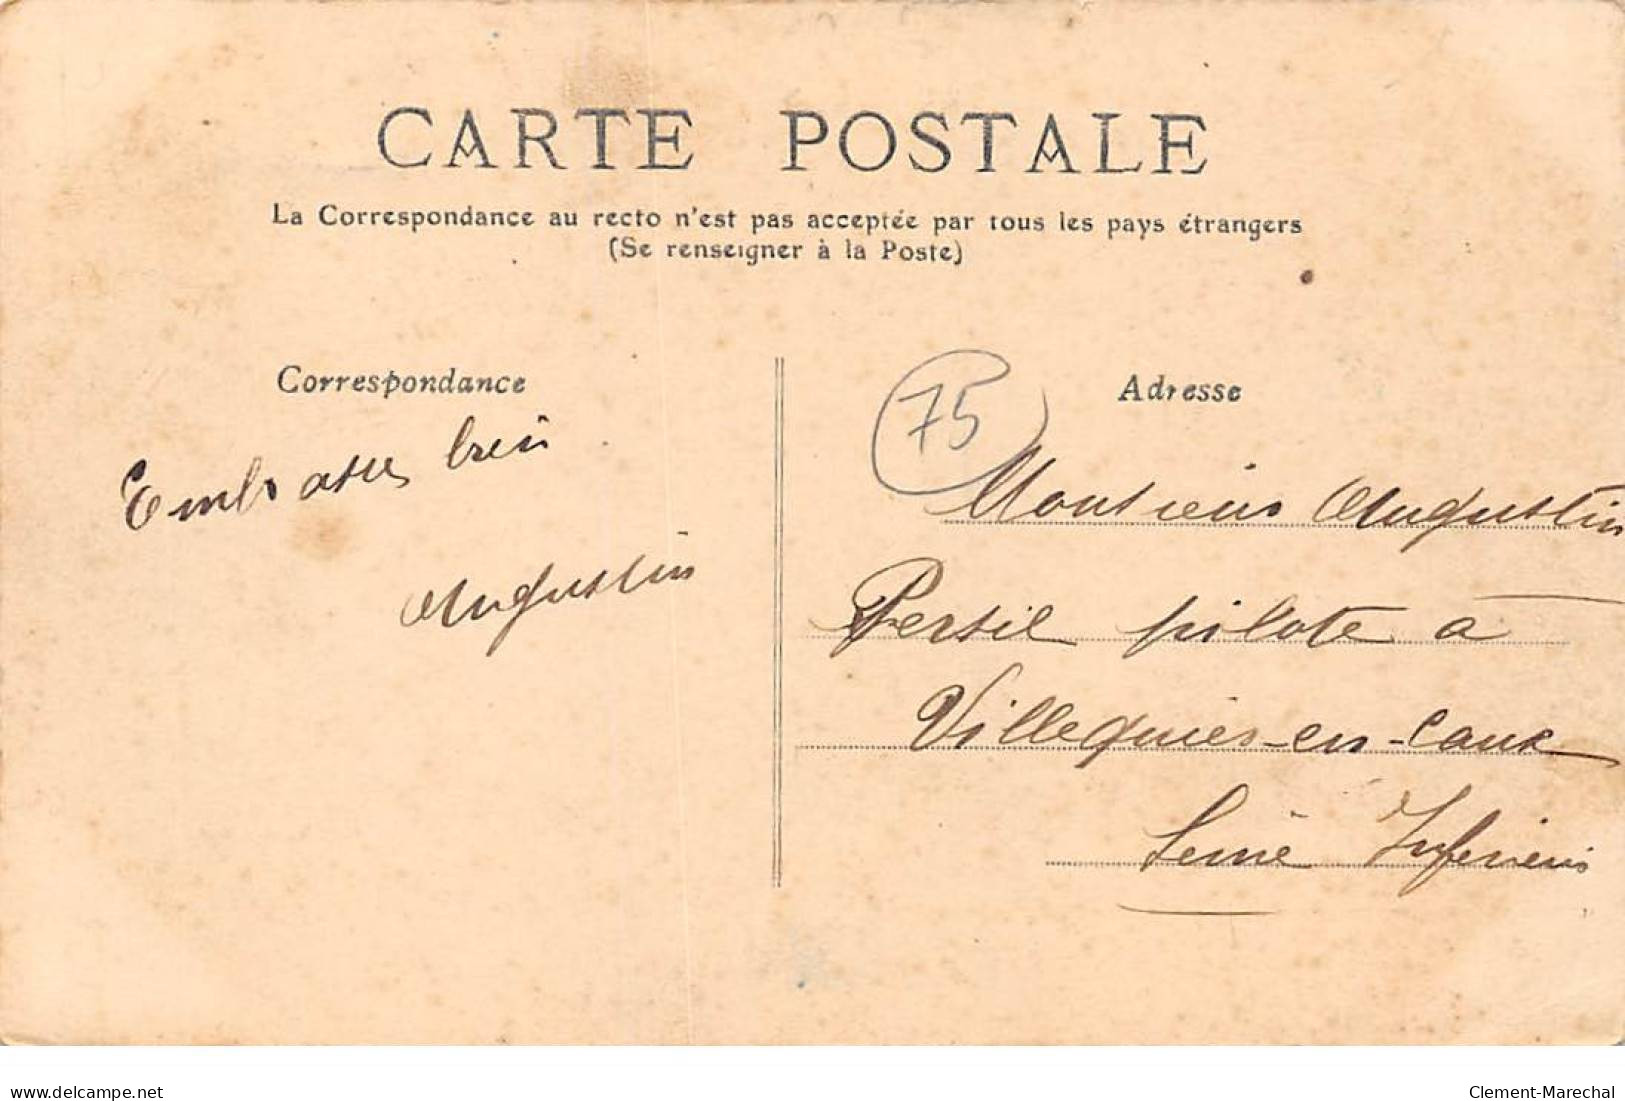 CARTE POSTALE
La Correspondance au recto n'est pas acceptée par tous les pays étrangers
(Se renseigner à la Poste)
Correspondance
Embrasses bien
Augustin
75
Adresse
Monsieur Augustin
Persil pilote à
Villequier-en-Caux
Seine Inférieur
delcampe.net
Clement-Marechal